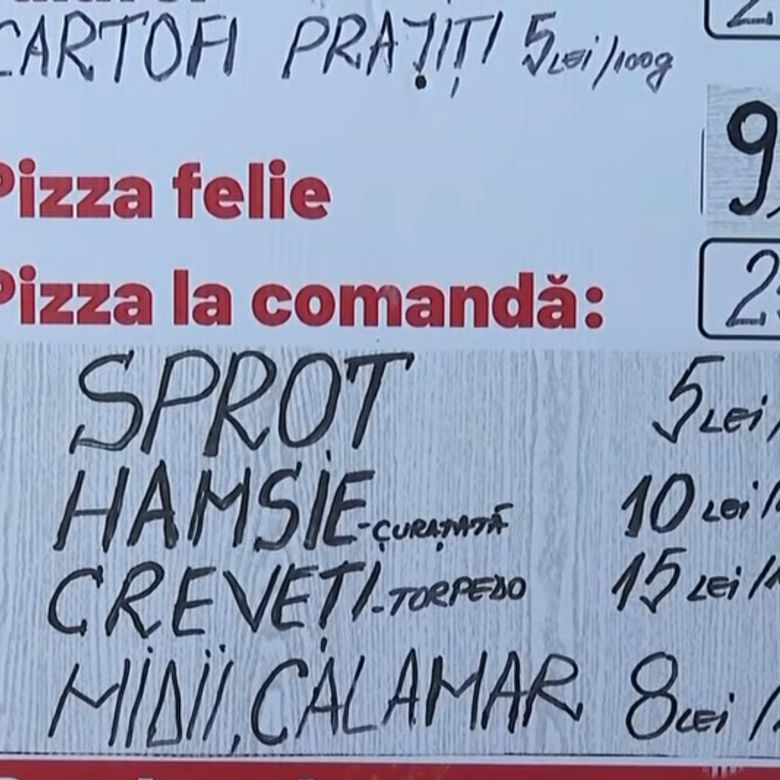 CARTOFI PRAJIȚI 5 LEI/100g
9,
Pizza felie
Pizza la comandă:
SPROT 5 LEI/
HAMSIE-CURATATĂ 10 LEI/
CREVEȚI-TORPEDO 15 LEI/1
MIDII, CALAMAR 8 LEI/